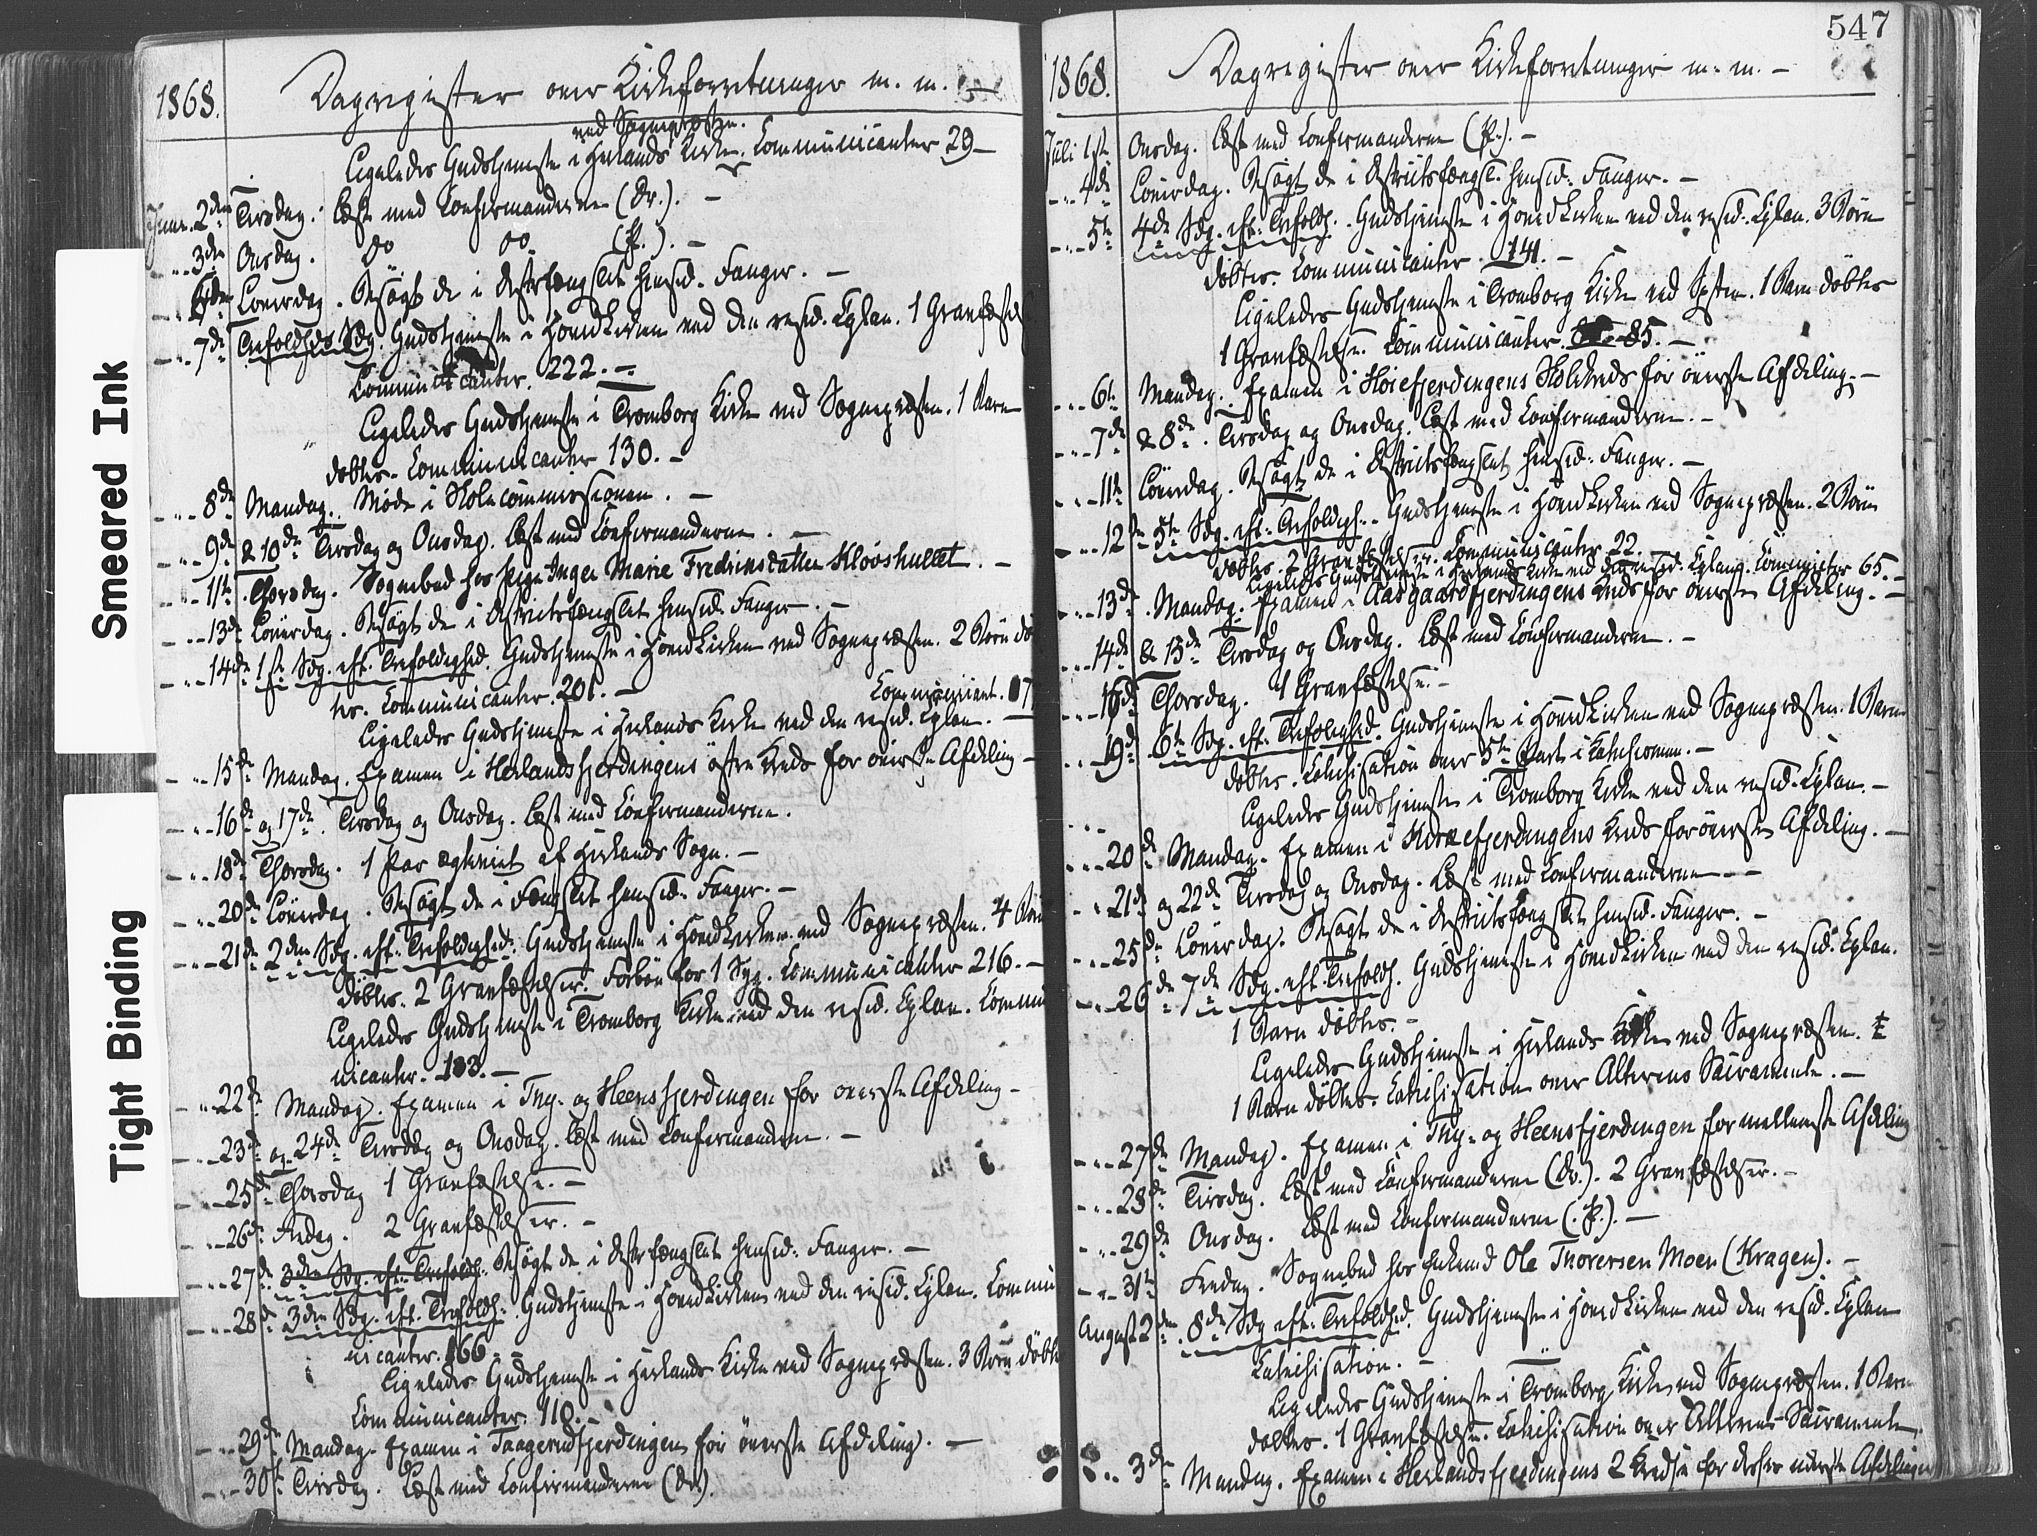 Smeared Ink
Tight Binding
1868. Dagregister over Kirkeforretninger m. m. —
ved Sognepræsten.
Ligeledes Gudstjeneste i Herlands Kirke. Communicanter 29 —
Juni. 2den Tirsdag. Læst med Confirmanderne (Dr.). —
3die Onsdag. Do Do (P.). —
6te Löverdag. Besøgt de i Distrfængslet hensid. Fanger. —
7de Trefoldheds Sdg. Gudstjeneste i Hovedkirken ved den resid. Cplan. 1 Gravfæstelse
Communicanter. 222. —
Ligeledes Gudstjeneste i Tromborg Kirke ved Sognepræsten. 1 Barn
döbtes. Communicanter 130. —
8de Mandag. Møde i Skolecommissionen. —
9de & 10de Tirsdag og Onsdag. Læst med Confirmanderne. —
11te Thorsdag. Sognebud hos Pige Inger Marie Fredriksdatter Kloveshullet. —
13de Löverdag. Besøgt de i Districtsfængslet hensid. Fanger. —
14de 1ste Sdg. eft. Trefoldighed. Gudstjeneste i Hovedkirken ved Sognepræsten. 2 Börn döb
tes. Communicanter. 201. — Communicant. 17
Ligeledes Gudstjeneste i Herlands Kirke ved den resid. Cplan. —
15de Mandag. Examen i Herlandsfjerdingens østre Kreds for øverste Afdeling —
16de og 17de. Tirsdag og Onsdag. Læst med Confirmanderne.
18de Thorsdag. 1 Par ægteviet af Herlands Sogn. —
20de Löverdag. Besøgt de i Fængslet hensid. Fanger. —
21de 2den Sdg. eft. Trefoldighed. Gudstjeneste i Hovedkirken ved Sognepræsten. 4 Börn
döbtes. 2 Gravfæstelser. Forbön for 1 Syg. Communicanter 216. —
Ligeledes Gudstjeneste i Tromborg Kirke ved den resid. Cplan. Commu
nicanter. 103. —
22de Mandag. Examen i Thy- og Heensfjerdingen for øverste Afdeling —
23de og 24de Tirsdag og Onsdag. Læst med Confirmanderne. —
25de Thorsdag 1 Gravfæstelse. —
26de Fredag. 2 Gravfæstelser. —
27de 3die Sdg. eft. Trefoldh. Besøgt de i Distrfængslet hensid. Fanger. —
28de 3die Sdg. eft. Trefoldh. Gudstjeneste i Hovedkirken ved den resid. Cplan. Commu
nicanter. 166. —
Ligeledes Gudstjeneste i Herlands Kirke ved Sognepræsten. 3 Börn döbte
Communicanter. 110. —
29de Mandag. Examen i Taagerudfjerdingen for øverste Afdeling. —
30te Tirsdag. Læst med Confirmanderne (Dr.).
547
1868. Dagregister over Kirkeforretninger m. m. —
Juli 1ste Onsdag. Læst med Confirmanderne (P.). —
4de Löverdag. Besøgt de i Districtsfængsl. hensid. Fanger. —
5te 4de Sdg. eft. Trefoldh. Gudstjeneste i Hovedkirken ved den resid. Cplan. 3 Börn
döbtes. Communicanter. 141. —
Ligeledes Gudstjeneste i Tromborg Kirke ved Spsten. 1 Barn döbtes
1 Gravfæstelse. Communicanter. 85. —
6te Mandag. Examen i Høiefjerdingens Skolekreds for øverste Afdeling. —
7de & 8de. Tirsdag og Onsdag. Læst med Confirmanderne. —
11te Löverdag. Besøgt de i Districtsfængslet hensid. Fanger. —
12te 5te Sdg. eft. Trefoldigh. Gudstjeneste i Hovedkirken ved Sognepræsten. 2 Börn
döbtes. 2 Gravfæstelser. Communicanter 22.
Ligeledes Gudstjeneste i Herlands Kirke ved den resid. Cplan. Communicter 65. —
13de Mandag. Examen i Aasgaardfjerdingens Kreds for øverste Afdeling. —
14de & 15de Tirsdag og Onsdag. Læst med Confirmanderne. —
16de Thorsdag. 1 Gravfæstelse. —
19de 6te Sdg. eft. Trefoldighed. Gudstjeneste i Hovedkirken ved Sognepræsten. 1 Barn
döbtes. Catechisation over 5te Part i Katechismen. —
Ligeledes Gudstjeneste i Tromborg Kirke ved den resid. Cplan. —
20de Mandag. Examen i Koraefjerdingens Kreds for øverste Afdeling. —
21de og 22de Tirsdag og Onsdag. Læst med Confirmanderne —
25de Löverdag. Besøgt de i Districtsfængslet hensid. Fanger. —
26de 7de Sdg. eft. Trefoldh. Gudstjeneste i Hovedkirken ved den resid. Cplan.
1 Barn döbtes. —
Ligeledes Gudstjeneste i Herlands Kirke ved Sognepræsten.
1 Barn döbtes. Catechisation over Alterens Sacramente. —
27de Mandag. Examen i Thy- og Heensfjerdingen for mellemste Afdeling
28de Tirsdag. Læst med Confirmanderne (Dr.). 2 Gravfæstelser. —
29de Onsdag. Læst med Confirmanderne (P.). —
31te Fredag. Sognebud hos Enkemd Ole Thoresen Moen (Kragen). —
August 2den 8de Sdg eft. Trefoldhed. Gudstjeneste i Hovedkirken ved den resid. Cplan
Catechisation. —
Ligeledes Gudstjeneste i Tromborg Kirke ved Sognepræsten. 1 Barn
döbtes. 1 Gravfæstelse. Catechisation over Alterens Sacramente
3die Mandag. Examen i Herlandsfjerdingens 2 Kredse for deres nederste Afdelinger